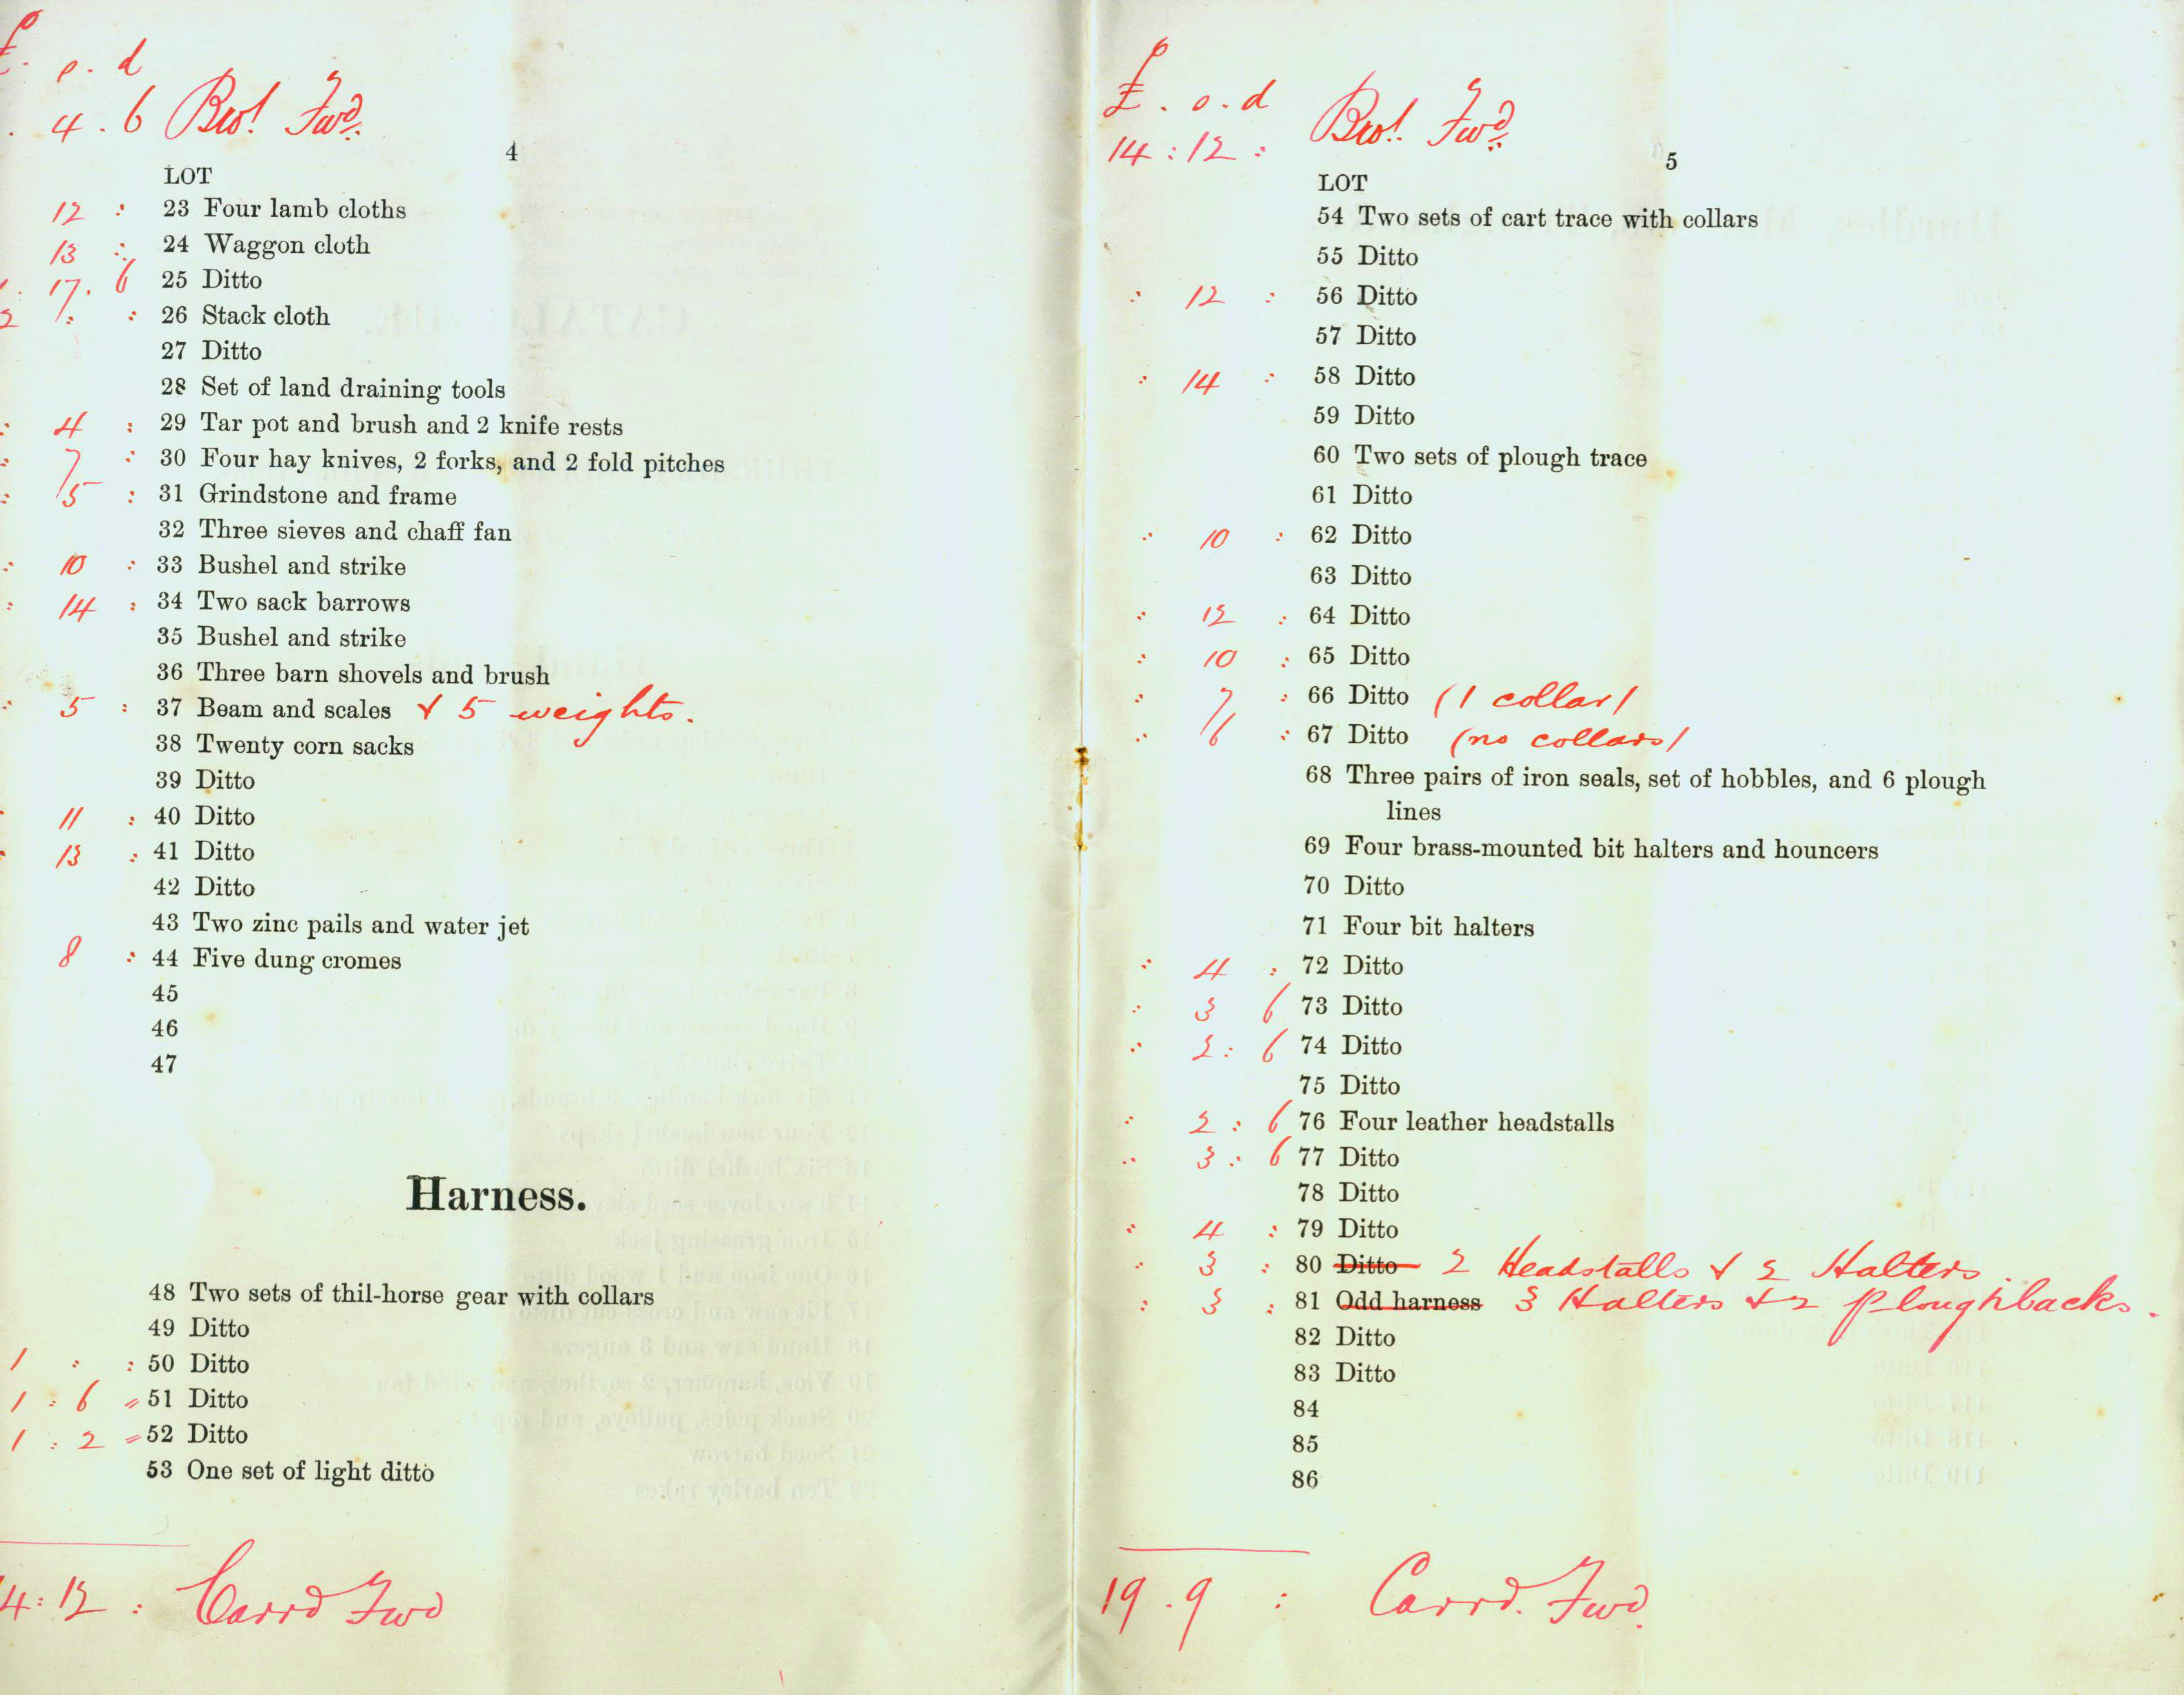 £. s. d
. 4 . 6 Brot. Fwd.
4
LOT
12 : 23 Four lamb cloths
13 : 24 Waggon cloth
17. 6 25 Ditto
2 : : 26 Stack cloth
27 Ditto
28 Set of land draining tools
: 4 : 29 Tar pot and brush and 2 knife rests
: 7 : 30 Four hay knives, 2 forks, and 2 fold pitches
: 15 : 31 Grindstone and frame
32 Three sieves and chaff fan
: 10 : 33 Bushel and strike
: 14 : 34 Two sack barrows
35 Bushel and strike
36 Three barn shovels and brush
: 5 : 37 Beam and scales & 5 weights.
38 Twenty corn sacks
39 Ditto
11 : 40 Ditto
13 : 41 Ditto
42 Ditto
43 Two zinc pails and water jet
8 : 44 Five dung cromes
45
46
47
Harness.
48 Two sets of thil-horse gear with collars
49 Ditto
1 : : 50 Ditto
1 : 6 = 51 Ditto
1 : 2 = 52 Ditto
53 One set of light ditto
4 : 12 : Carrd Fwd
£ . s . d
14 : 12 : Brot. Fwd.
5
LOT
54 Two sets of cart trace with collars
55 Ditto
: 12 : 56 Ditto
57 Ditto
: 14 : 58 Ditto
59 Ditto
60 Two sets of plough trace
61 Ditto
: 10 : 62 Ditto
63 Ditto
: 12 : 64 Ditto
: 10 : 65 Ditto
: 7 : 66 Ditto (1 collar)
: 16 : 67 Ditto (no collars)
68 Three pairs of iron seals, set of hobbles, and 6 plough
lines
69 Four brass-mounted bit halters and houncers
70 Ditto
71 Four bit halters
: 4 : 72 Ditto
: 3 6 73 Ditto
: 2 : 6 74 Ditto
75 Ditto
: 2 : 6 76 Four leather headstalls
: 3 : 6 77 Ditto
78 Ditto
: 4 : 79 Ditto
: 3 : 80 Ditto 2 Headstalls & 2 Halters.
: 3 : 81 Odd harness 3 Halters & 2 ploughbacks.
82 Ditto
83 Ditto
84
85
86
19 . 9 : Carrd. Fwd.